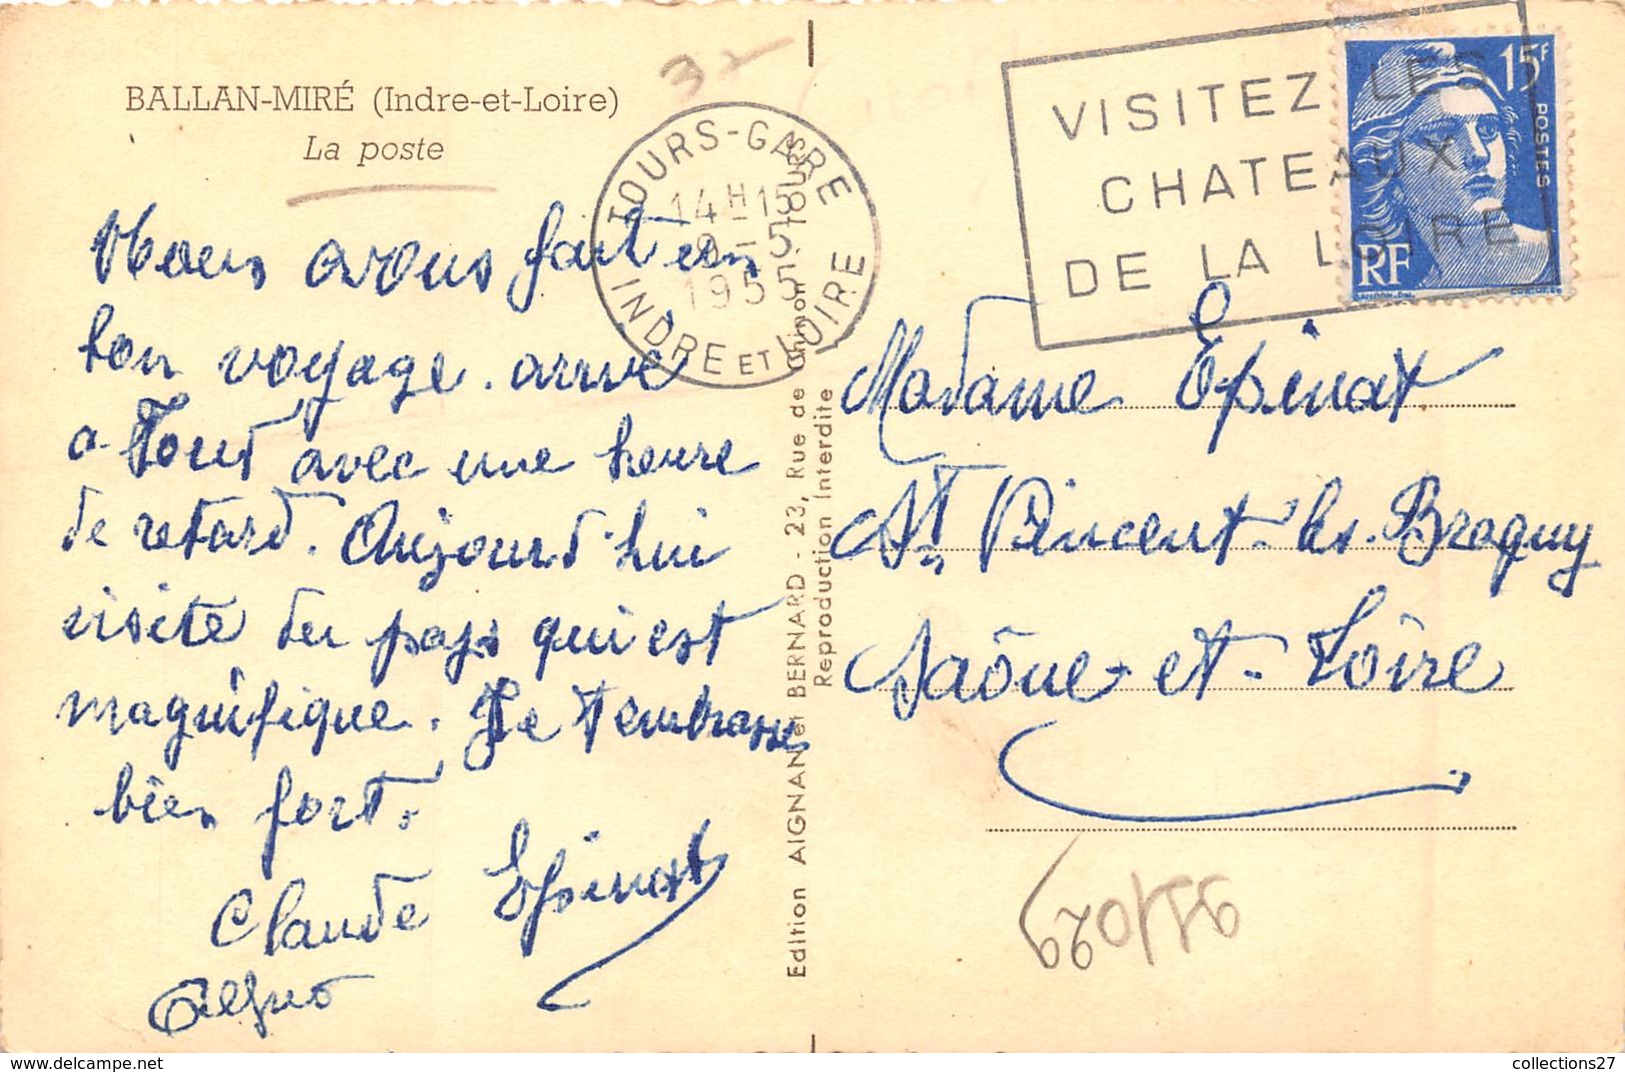 BALLAN-MIRÉ (Indre-et-Loire)
La poste
Nous avons fait un
bon voyage. arrivé
a Tours avec une heure
de retard. Aujourd'hui
visite du pays qui est
magnifique. Je t'embrasse
bien fort.
Claude Epinat
TOURS-GARE
14H15
9-5
1955
INDRE ET LOIRE
Edition AIGNAN et BERNARD - 23, Rue de Chinon - TOURS
Reproduction Interdite
VISITEZ LES
CHATEAUX
DE LA LOIRE
15F
POSTES
RF
Madame Epinat
St Vincent-les-Bragny
Saône-et-Loire
collections27